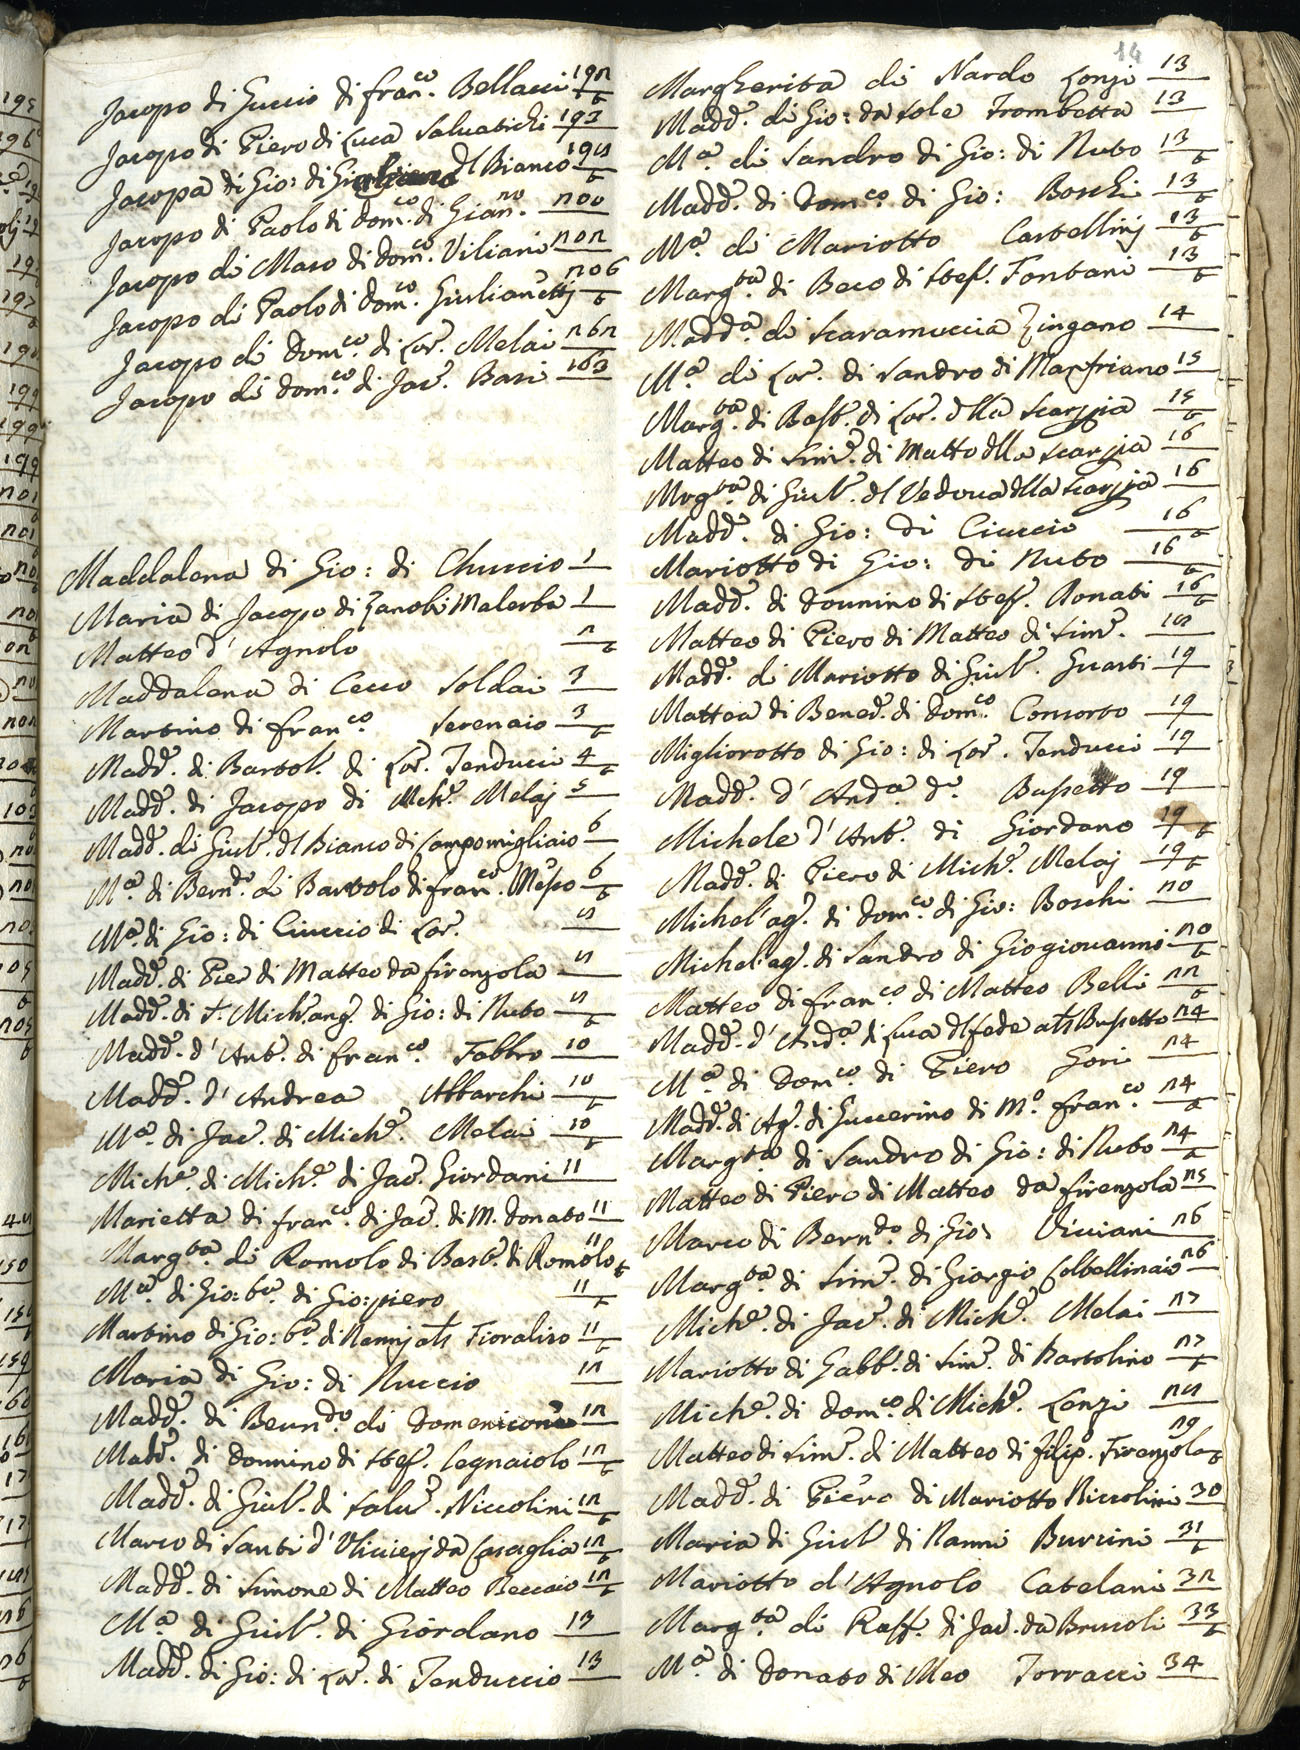 14
Jacopo di Guccio di Fran.co Bellacci 192 t
Jacopo di Piero di Luca Salvatichi 193
Jacopa di Gio: di Giuliano dl Bianco 198 t
Jacopo di Paolo di Dom.co di Gian.no 200
Jacopo di Maso di Dom.co Viliani 202
Jacopo di Paolo di Dom.co Giulianetti 206 t
Jacopo di Dom.co di Lor. Melai 262
Jacopo di Dom.co di Jac. Basi 163
Maddalena di Gio: di Chuccio 1
Maria di Jacopo di Zanobi Malerba 1
Matteo d' Agnolo 2 t
Maddalena di Cecco Soldai 3
Martino di Fran.co Serenaio 3 t
Madd. di Bartol. di Lor. Tenducci 4 t
Madd. di Jacopo di Mich. Melaj 5
Madd. di Giul. dl Bianco di Campomigliaio 6
M.a di Bern.do di Bartolo di Fran.co 6 t
M.a di Gio: di Ciuccio di Lor. 8
Madd. di Pier di Matteo da Firenzola 8
Madd. di Mich.ang. di Gio: di Nuto 8 t
Madd. d' Ant. di Fran.co Fabbro 10
Madd. d' Andrea Abbarchi 10 t
M.a di Jac. di Mich. Melai 10 t
Mich. di Mich. di Jac. Giordani 11
Marietta di Fran.co di Jac. di M. Donato 11
Marg.ta di Romolo di Bart. di Romolo 11 t
M.a di Gio: b.a di Gio: piero 11 t
Martino di Gio: b.a di Nannj als Fioraliso 11 t
Maria di Gio: di Nuccio 12
Madd. di Bern.do di Domenicone 12
Madd. di Donnino di Stef. Legnaiolo 12 t
Madd. di Giul. di Salv. Niccolini 12 t
Marco di Santi d' Ulivierj da Casaglia 12 t
Madd. di Simone di Matteo Beccaio 12 t
M.a di Giul. di Giordano 13
Madd. di Gio: di Lor. di Tenduccio 13
Margherita di Nardo Lonzi 13
Madd. di Gio: da Sole Trombetta 13
M.a di Sandro di Gio: di Nuto 13 t
Madd. di Dom.co di Gio: Boschi 13 t
M.a di Mariotto Castellinj 13 t
Marg.ta di Beco di Stef. Fontani 13 t
Madd.a di Scaramuccia Zingano 14
M.a di Lor. di Sandro di Manfriano 15
Marg.ta di Bast. di Lor. dlla Scarpia 15 t
Matteo di Sim. di Matteo dlla Scarpia 16
Mrg.ta di Giul. dl Vedova dlla Scarpia 16
Madd. di Gio: di Ciuccio 16 t
Mariotto di Gio: di Nuto 16 t
Madd. di Donnino di Stef. Donati 16 t
Matteo di Piero di Matteo di Sim. 18
Madd. di Mariotto di Giul. Guasti 19
Mattea di Bened. di Dom.co Consorto 19
Migliorotto di Gio: di Lor. Tenducci 19
Madd. d' And.a d.o Bussetto 19
Michele d' Ant. di Giordano 19 t
Madd. di Piero di Mich. Melaj 19 t
Michel' ag. di Dom.co di Gio: Boschi 20
Michel' ag. di Sandro di Giogiovanni 20 t
Matteo di Fran.co di Matteo Belli 22 t
Madd. d' And.a di Luca dl Fede als Bussetto 24
M.a di Dom.co di Piero Gori 24
Madd. di Ag. di Guccerino di M.o Fran.co 24 t
Marg.ta di Sandro di Gio: di Nuto 24 t
Matteo di Piero di Matteo da Firenzola 25
Marco di Bern.do di Gio: Vicciani 26
Marg.ta di Sim. di Giorgio Coltellinaio 26
Mich. di Jac. di Mich. Melai 27
Mariotto di Gabb. di Sim. di Bartolino 27 t
Mich. di Dom.co di Mich. Lonzi 28
Matteo di Sim. di Matteo di Filip. Firenzola 29 t
Madd. di Piero di Mariotto Niccolini 30
Maria di Giul. di Nanni Burrini 31 t
Mariotto d' Agnolo Catelani 32
Marg.ta di Raff. di Jac. da Bruscoli 33 t
M.a di Donato di Meo Torracci 34